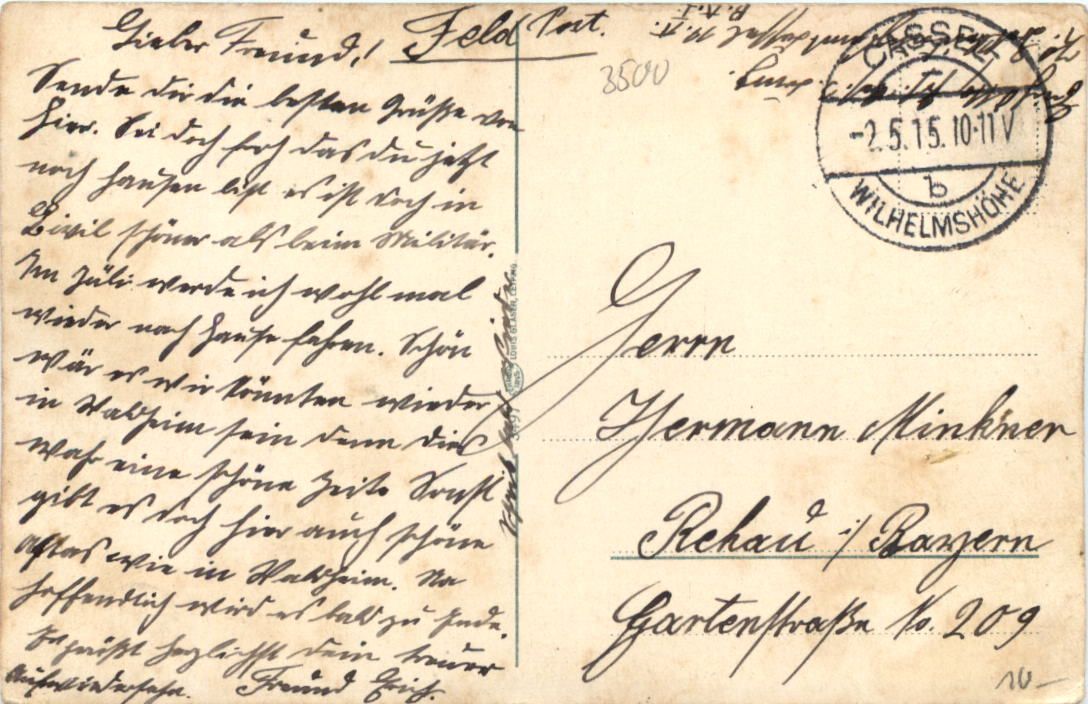 Lieber Freund!
Sende dir die besten Grüße von
hier. Sei doch froh das du jetzt
noch hausen bist es ist doch in
Civil schöner als beim Militär.
Im Juli werde ich wohl mal
wieder nach Hause fahren. Schön
wär es wir könnten wieder
in Waldheim sein denn dies
wahr eine schöne Zeite Sonst
gibt es doch hier auch schöne
wie in Waldheim. Na
hoffendlich wird es bald zu Ende.
Es grüßt herzlichst dein treuer
Freund Erich.
Aufwiedersehn.
Feld Post.
3500
CASSEL
-2.5.15.10-11V
b
WILHELMSHÖHE
LOUIS GLASER, LEIPZIG
Herrn
Hermann Minkner
Rehau i/ Bayern
Gartenstraße No. 209
10-